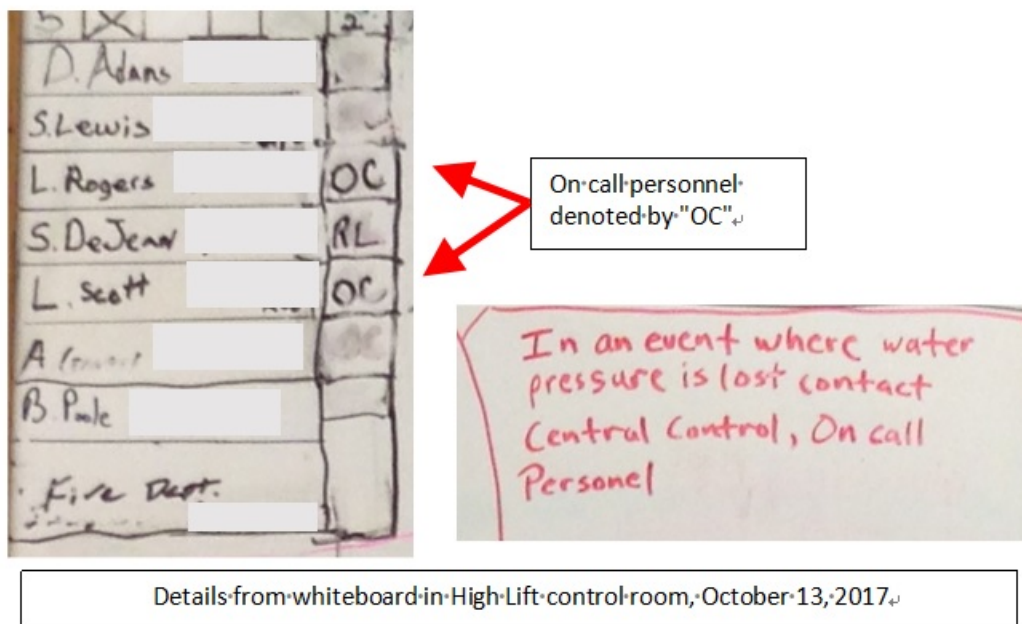 5 2
D. Adans
S. Lewis
L. Rogers OC
S. DeJean RL
L. Scott OC
A
B. Poole
Fire Dept.
On call personnel
denoted by "OC"
In an event where water
pressure is lost contact
Central Control, On call
Personel
Details from whiteboard in High Lift control room, October 13, 2017